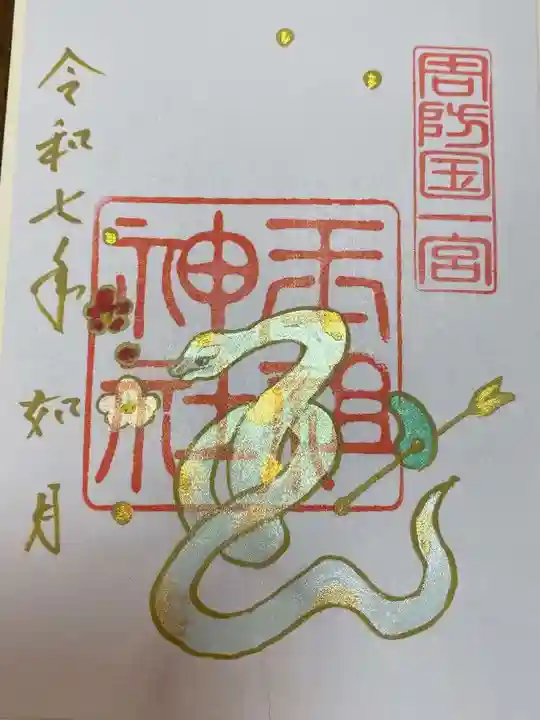 周防国一宮
玉祖神社
令和七年 如月